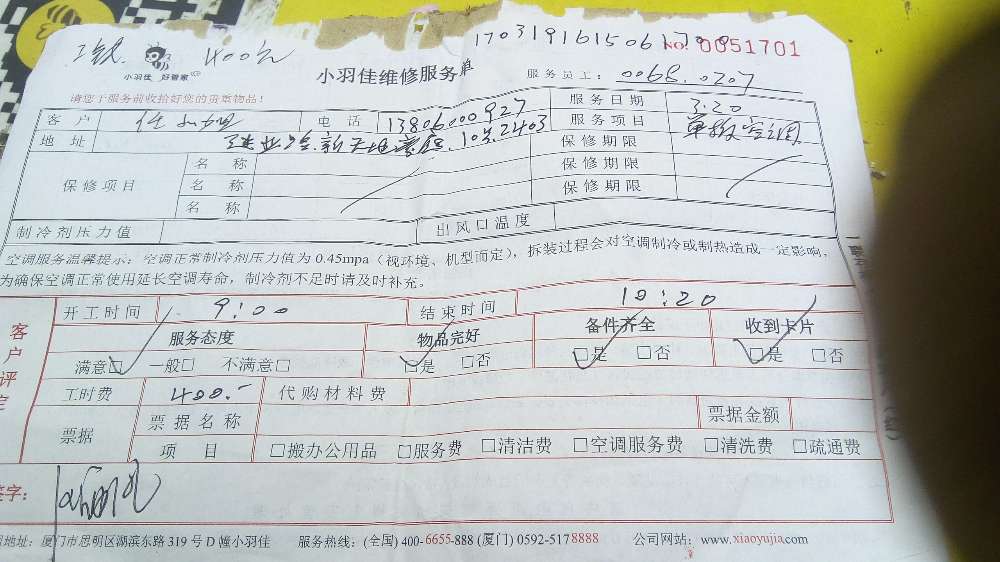 400元
17031916150617
NO. 0051701
小羽佳 好管家
小羽佳维修服务单
服务员工: 0068.0707
请您于服务前收拾好您的贵重物品!
客户 任 电话 13806000927 服务日期 3.20
地址 新天地 10#.2403 服务项目 空调
保修项目 名称 保修期限
名称 保修期限
名称 保修期限
制冷剂压力值 出风口温度
空调服务温馨提示: 空调正常制冷剂压力值为 0.45mpa (视环境、机型而定), 拆装过程会对空调制冷或制热造成一定影响,
为确保空调正常使用延长空调寿命, 制冷剂不足时请及时补充。
客户评定
开工时间 9:00 结束时间 10:20
服务态度 物品完好 备件齐全 收到卡片
满意□ 一般□ 不满意□ □是 □否 □是 □否 □是 □否
工时费 400.- 代购材料费
票据 票据名称 票据金额
项目 □搬办公用品 □服务费 □清洁费 □空调服务费 □清洗费 □疏通费
签字:
地址: 厦门市思明区湖滨东路 319 号 D 幢小羽佳 服务热线: (全国) 400-6655-888 (厦门) 0592-5178888 公司网站: www.xiaoyujia.com